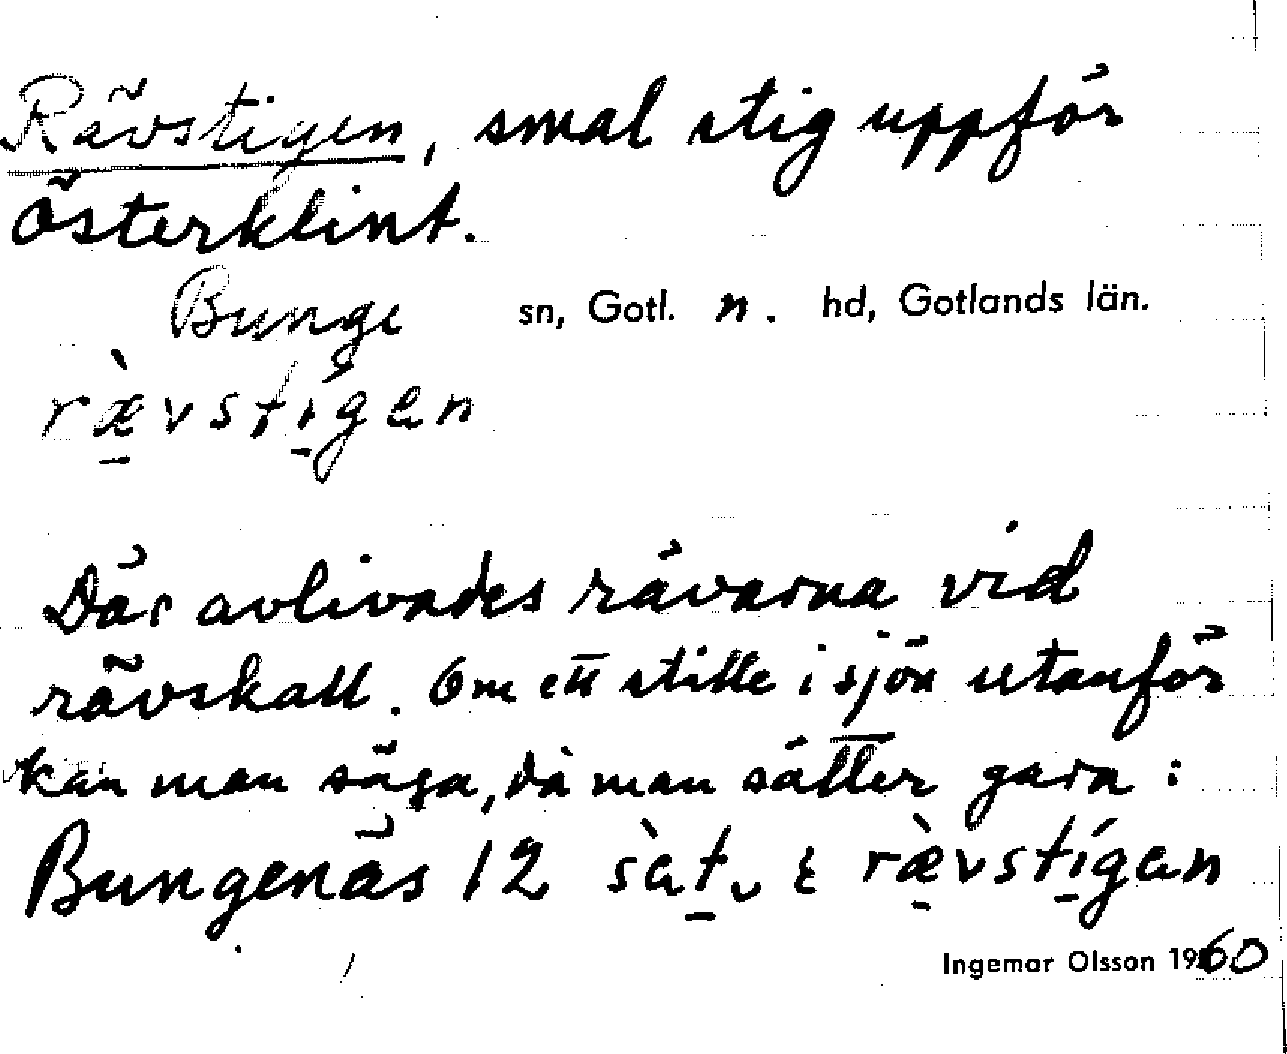 Rävstigen, smal stig uppför
Österklint.
Bunge sn, Gotl. n. hd, Gotlands län.
rævstigen
Där avlivades rävarna vid
rävskall. Om ett ställe i sjön utanför
kan man säga, då man sätter garn:
Bungenäs 12 sat, rævstigan
Ingemar Olsson 1960